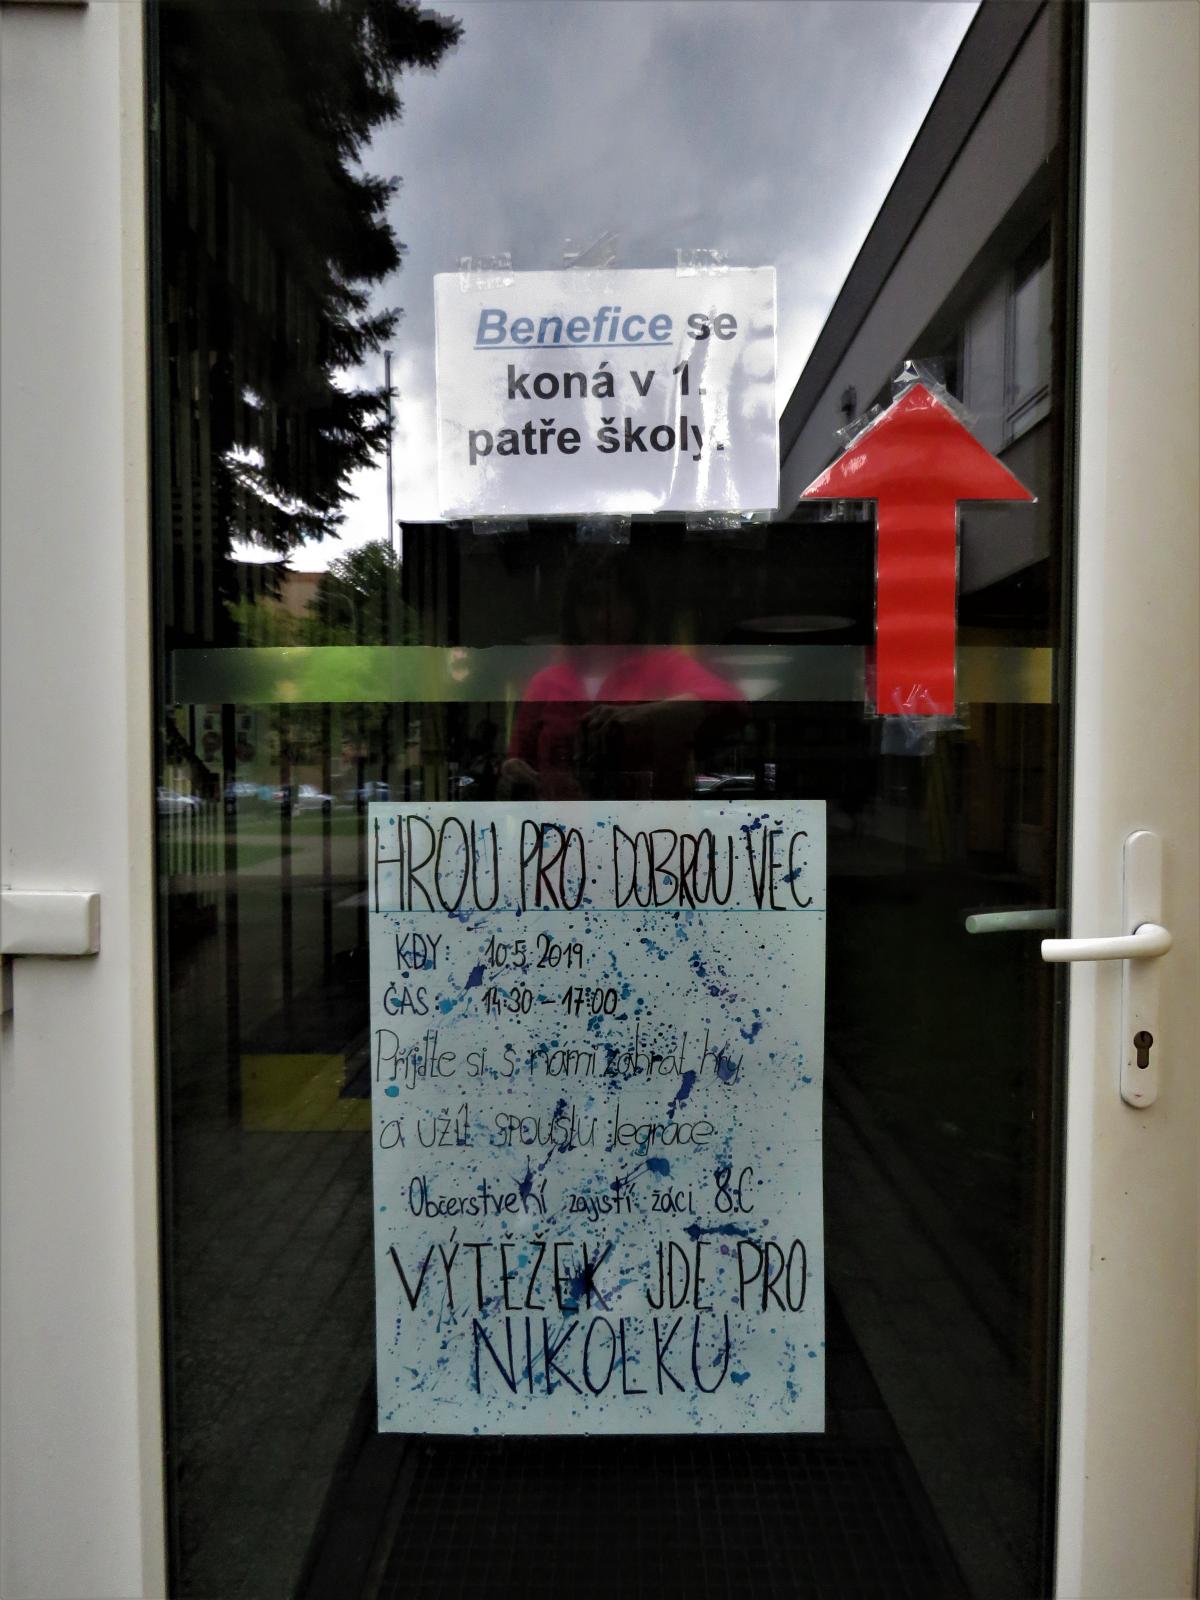 Benefice se
koná v 1.
patře školy.
HROU PRO DOBROU VĚC
KDY: 10.5.2019
ČAS: 14:30 - 17:00
Přijďte si s námi zahrát hry
a užít spoustu legrace
Občerstvení zajistí žáci 8.C
VÝTĚŽEK JDE PRO
NIKOLKU